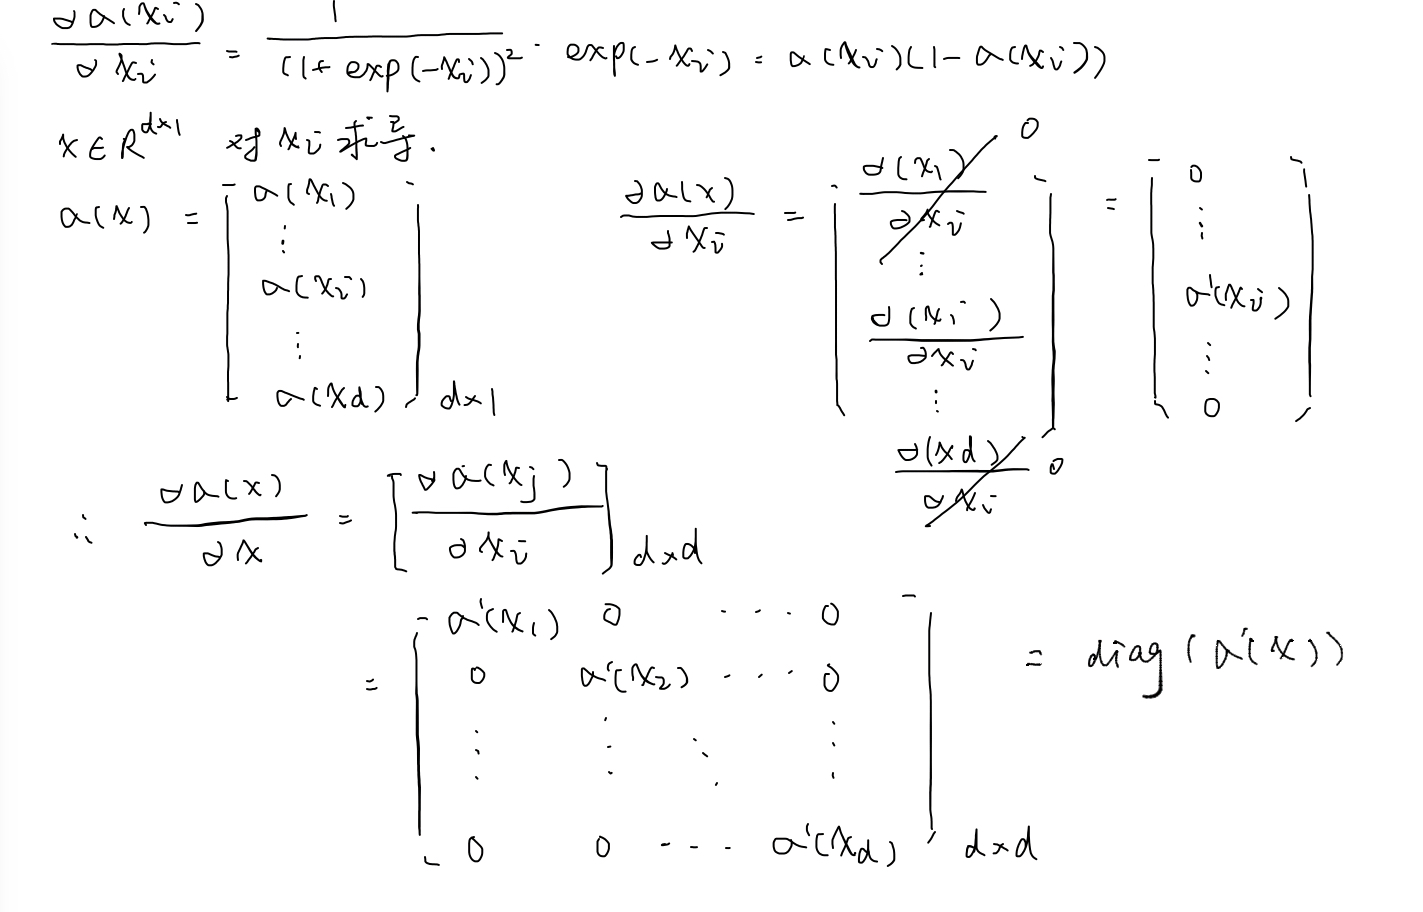 ∂a(xᵢ)/∂xᵢ = 1/(1+exp(-xᵢ))² · exp(-xᵢ) = a(xᵢ)(1-a(xᵢ))
x∈R^{d×1} 对 xᵢ 求导.
a(x) = [a(x₁) ⋮ a(xᵢ) ⋮ a(xd)] d×1   ∂a(x)/∂xᵢ = [∂(x₁)/∂xᵢ 0 ⋮ ∂(xᵢ)/∂xᵢ ⋮ ∂(xd)/∂xᵢ 0] = [0 ⋮ a'(xᵢ) ⋮ 0]
∴ ∂a(x)/∂x = [∂a(xⱼ)/∂xᵢ] d×d
= [a'(x₁) 0 ⋯ 0
0 a'(x₂) ⋯ 0
⋮ ⋮ ⋱ ⋮
0 0 ⋯ a'(xd)] d×d = diag(a'(x))